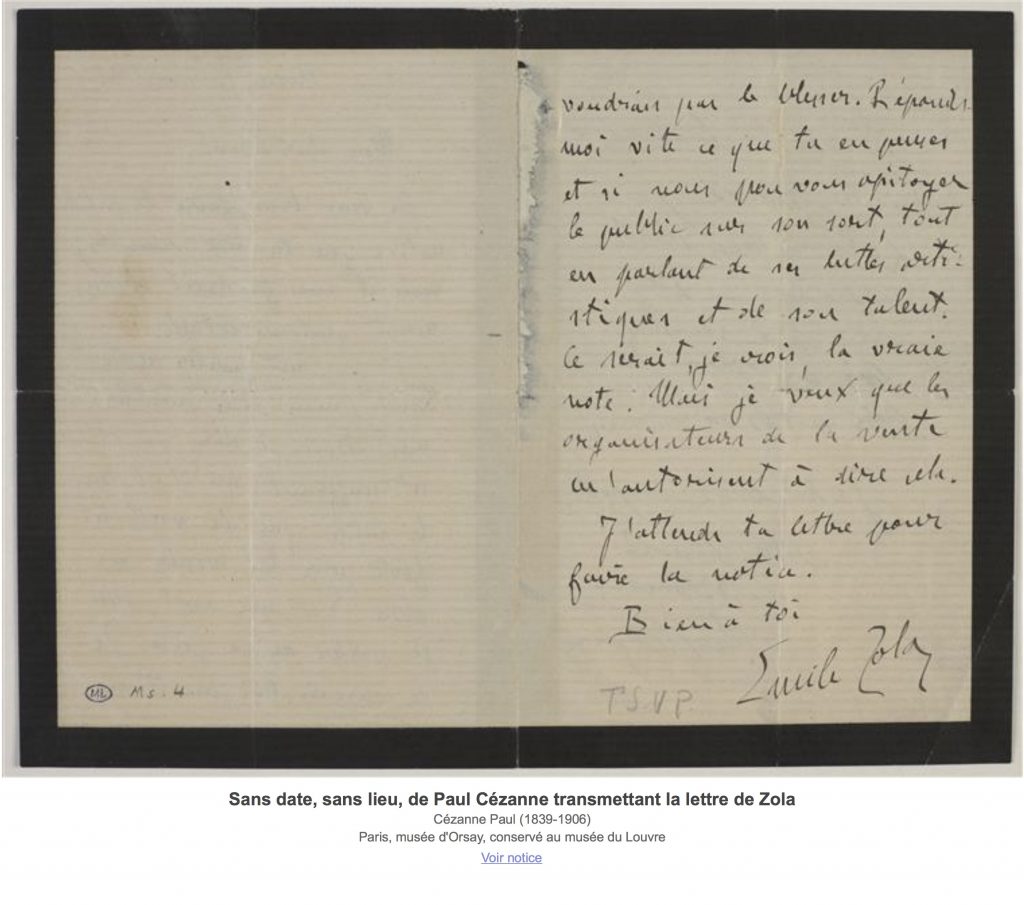 voudrais pas le blesser. Réponds-
moi vite ce que tu en penses
et si nous pouvons apitoyer
le public sur son sort, tout
en parlant de ses luttes arti-
stiques et de son talent.
Ce serait, je crois, la vraie
note. Mais je veux que les
organisateurs de la vente
m'autorisent à dire cela.
J'attends ta lettre pour
faire la notice.
Bien à toi
Emile Zola
T.S.V.P.
ML Ms. 4
Sans date, sans lieu, de Paul Cézanne transmettant la lettre de Zola
Cézanne Paul (1839-1906)
Paris, musée d'Orsay, conservé au musée du Louvre
Voir notice